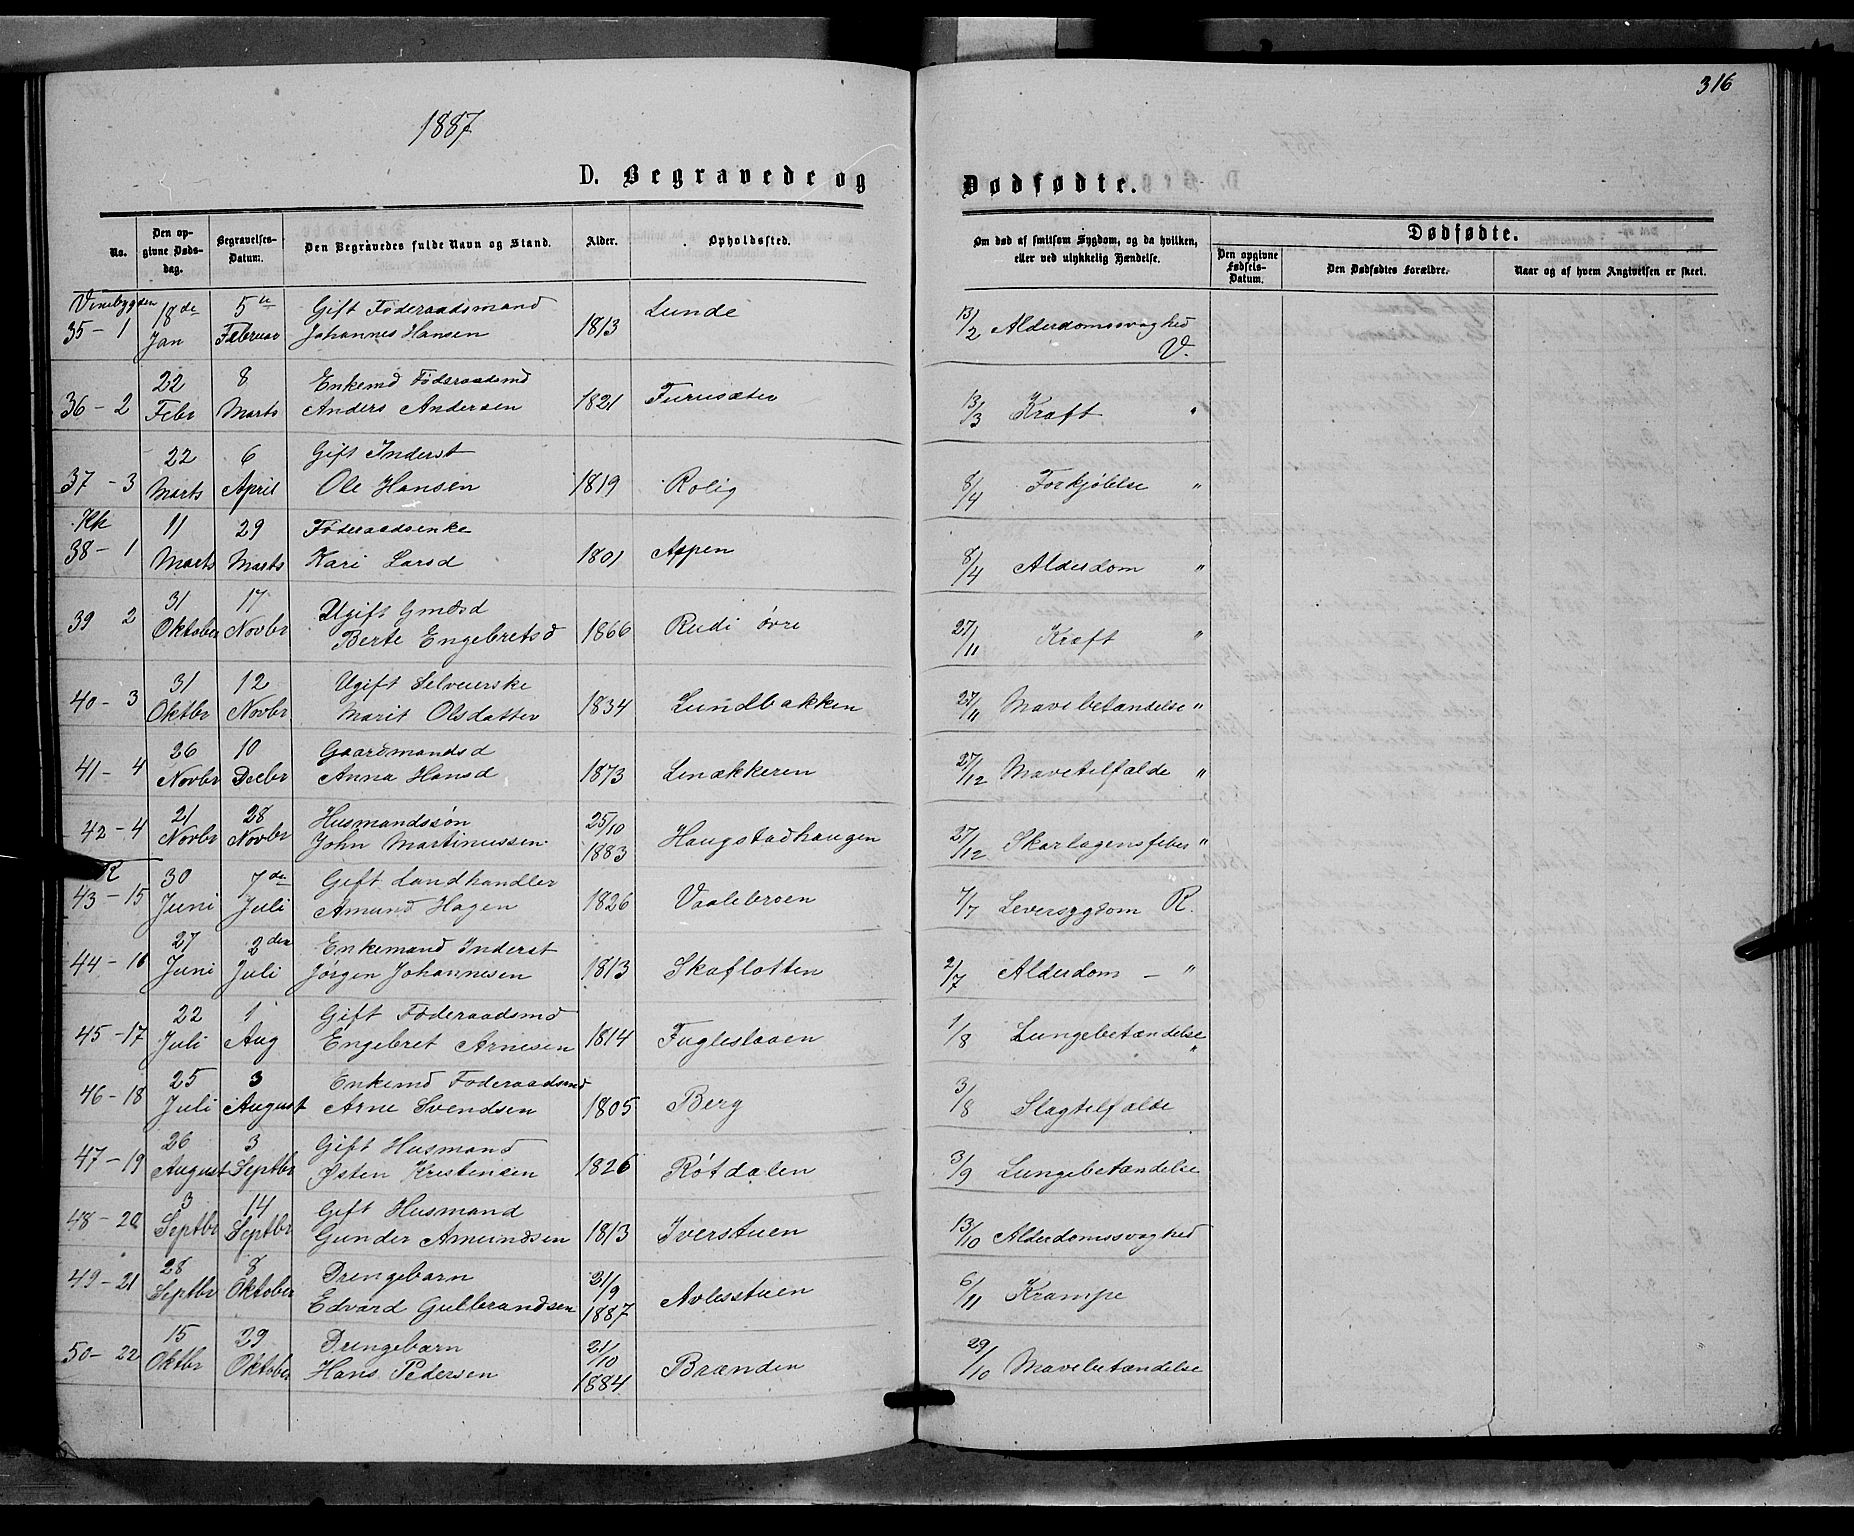 316
1887
D. Begravede og Dødfødte.
No.
Den opgivne Dødsdag.
Begravelses-Datum.
Den Begravedes fulde Navn og Stand.
Alder.
Opholdssted.
Om død af smitsom Sygdom, og da hvilken, eller ved ulykkelig Hændelse.
Dødfødte.
Den opgivne Fødsels-Datum.
Den Dødfødtes Forældre.
Naar og af hvem Angivelsen er skeet.
Vinebygden 18de 5te Gift Føderaadsmand Lunde
35 - 1 Jan Februar Johannes Hansen 1813 13/2 Alderdomssvaghed V.
22 8 Enkemd Føderaadsmd
36 - 2 Febr Marts Anders Andersen 1821 Furusæter 13/3 Kraft "
22 6 Gift Inderst
37 - 3 Marts April Ole Hansen 1819 Rolig 8/4 Forkjølelse "
Kk 11 29 Føderaadsenke
38 - 1 Marts Marts Kari Larsd 1801 Aspen 8/4 Alderdom "
31 17 Ugift Gmdsd
39 2 Oktober Novbr Berte Engebretsd 1866 Rudi øvre 27/11 Kræft "
31 12 Ugift Selveierske
40 - 3 Oktbr Novbr Marit Olsdatter 1834 Lundbakken 27/11 Mavebetændelse "
26 10 Gaardmandsd
41 - 4 Novbr Decbr Anna Hansd 1873 Linækkeren 27/12 Mavetilfælde "
21 28 Husmandssøn 25/10
42 - 4 Novbr Novbr John Martinussen 1883 Haugstadhaugen 27/12 Skarlagensfeber "
R 30 7de Gift Landhandler
43 - 15 Juni Juli Amund Hagen 1826 Vaalebroen 7/7 Leversygdom R.
27 2den Enkemand Inderst
44 - 16 Juni Juli Jørgen Johannesen 1813 Skaflotten 2/7 Alderdom - "
22 1 Gift Føderaadsmd
45 - 17 Juli Aug Engebret Arnesen 1814 Fugleslaaen 1/8 Lungebetændelse "
25 3 Enkemd Føderaadsmd
46 - 18 Juli August Arne Svendsen 1805 Berg 3/8 Slagtilfælde
26 3 Gift Husmand
47 - 19 August Septbr Østen Kristensen 1826 Røtdalen 3/9 Lungebetændelse
3 14 Gift Husmand
48 - 20 Septbr Septbr Gunder Amundsen 1813 Iverstuen 13/10 Alderdomssvaghed
28 8 Drengebarn 21/9
49 - 21 Septbr Oktober Edvard Gulbrandsen 1887 Avlesstuen 6/11 Krampe
15 29 Drengebarn 21/10
50 - 22 Oktbr Oktober Hans Pedersen 1884 Brænden 29/10 Mavebetændelse